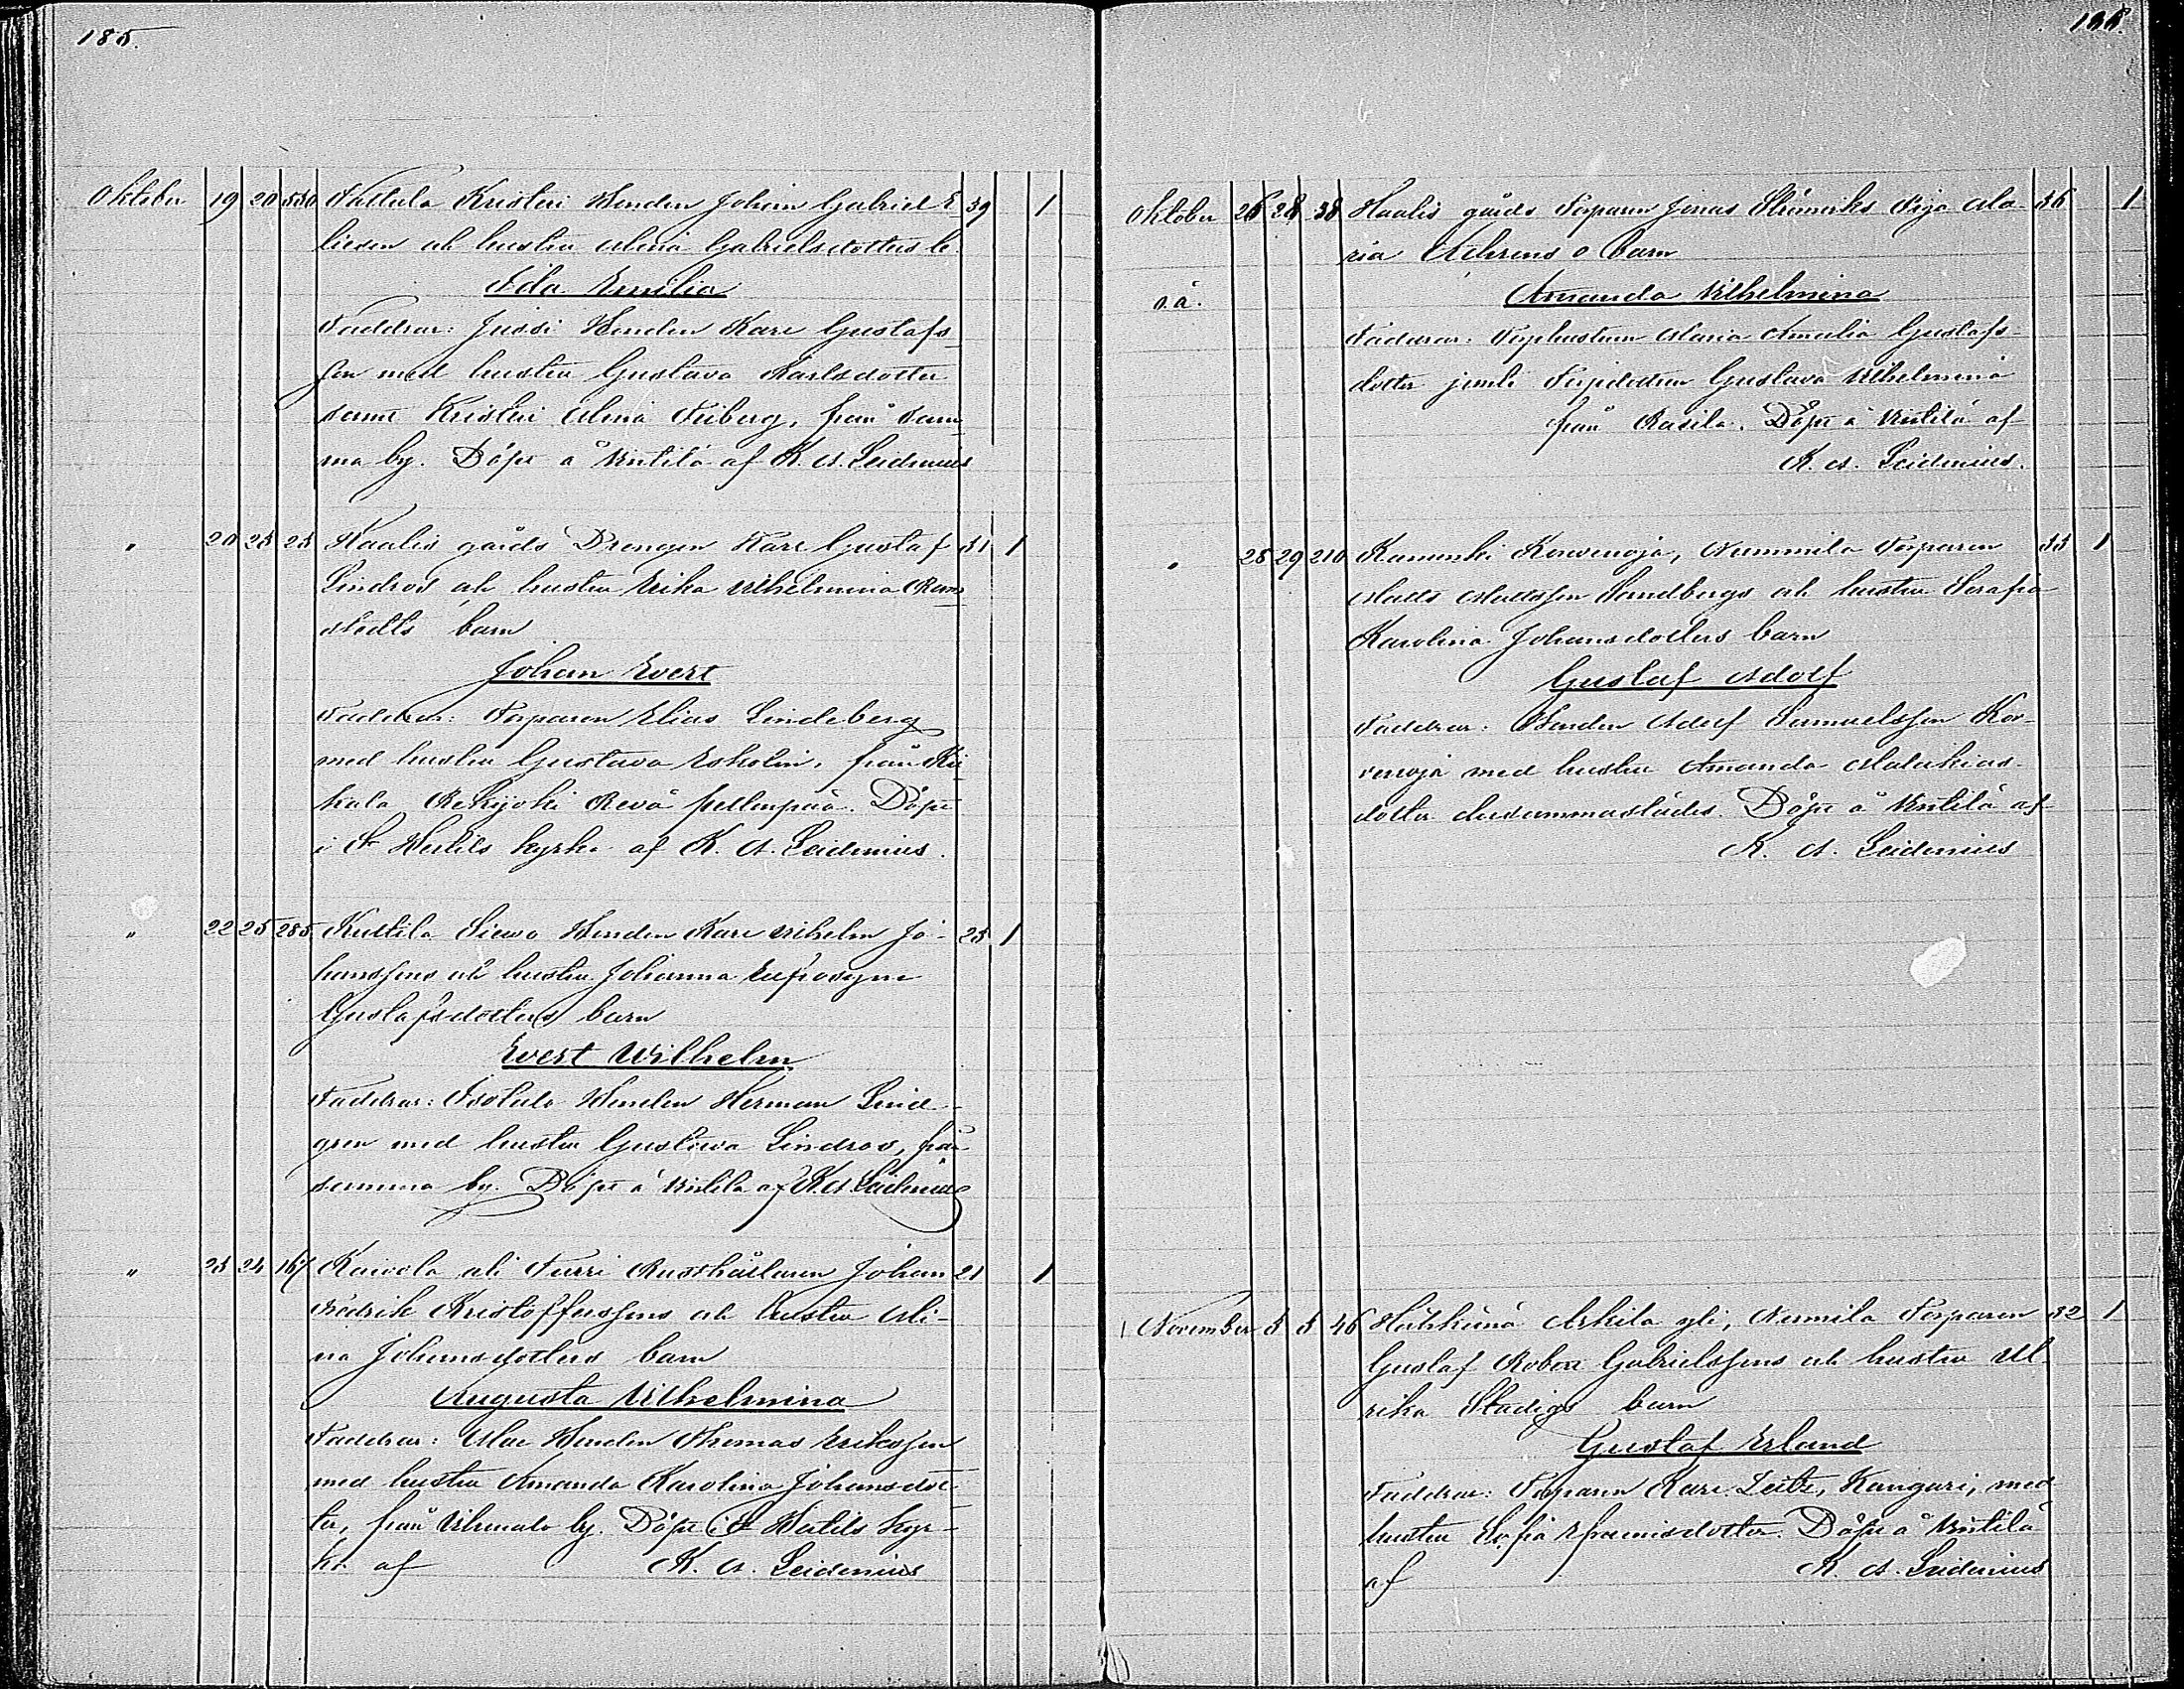 185.
Oktober 19 20 330 Kristeri Bonden Johan Gabriel E 39 1
och hustru Alina Gabrielsdotters b.
Ida Emilia
Faddrar: Jussi Bonden Karl Gustafs
son med hustru Gustava Karlsdotter
samt Kristeri Alina Friberg, från sam
ma by. Döpt å Uutila af K. A. Leidenius
" 20 23 23 Haalis gårds Drengen Karl Gustaf 31 1
Lindros och hustru Erika Vilhelmina Ram
stedts barn
Johan Evert
Faddrar: Torparen Elias Lindeberg
med hustru Gustava Eskolin, från
kala Rekijoki Döpt
i St Bertils kyrka af K. A. Leidenius.
" 22 25 285 Kuttila Bonden Karl Vilhelm Jo- 23 1
hanssons och hustru Johanna Eufrosyne
Gustafsdotters barn
Evert Wilhelm
Faddrar: Bonden Herman Lind-
gren med hustru Gustava Lindros, från
samma by. Döpt å Uutila af K. A. Leidenius
" 23 24 167 Kaivola ali Furri Rusthållaren Johan 21 1
Fredrik Kristofferssons och hustru Ali-
na Johansdotters barn
Augusta Vilhelmina
Faddrar: Bonden Thomas Eriksson
med hustru Amanda Karolina Johansdot-
ter, från by. Döpt i St Bertils kyr-
ka af K. A. Leidenius
186.
Oktober 26 28 38 Haalis gårds Torparen Jonas Piga Ma- 36 1
ria o barn
o.ä. Amanda Vilhelmina
Faddrar: Torphustrun Maria Amalia Gustafs-
dotter jemte Gustava Vilhelmina
från Rasila. Döpt å Uutila af
K. A. Leidenius.
" 28 29 210 Korvenoja, Nummila Torparen 33 1
Matts Mattsson Sandbergs och hustru Serafia
Karolina Johansdotters barn
Gustaf Adolf
Faddrar: Bonden Adolf Samuelsson Kor-
venoja med hustru Amanda Malakias-
dotter dersammastädes. Döpt å Uutila af
K. A. Leidenius
November 3 5 46 yli, Nummila Torparen 32 1
Gustaf Robert Gabrielssons och hustru Ul-
rika Stadigs barn
Gustaf Erland
Faddrar: Torparen Karl Kangari, med
hustru Sofia Efraimsdotter. Döpt å Uutila
af K. A. Leidenius